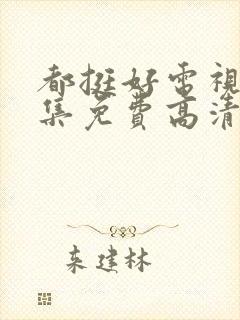 都挺好電視
集免費高清
来建林